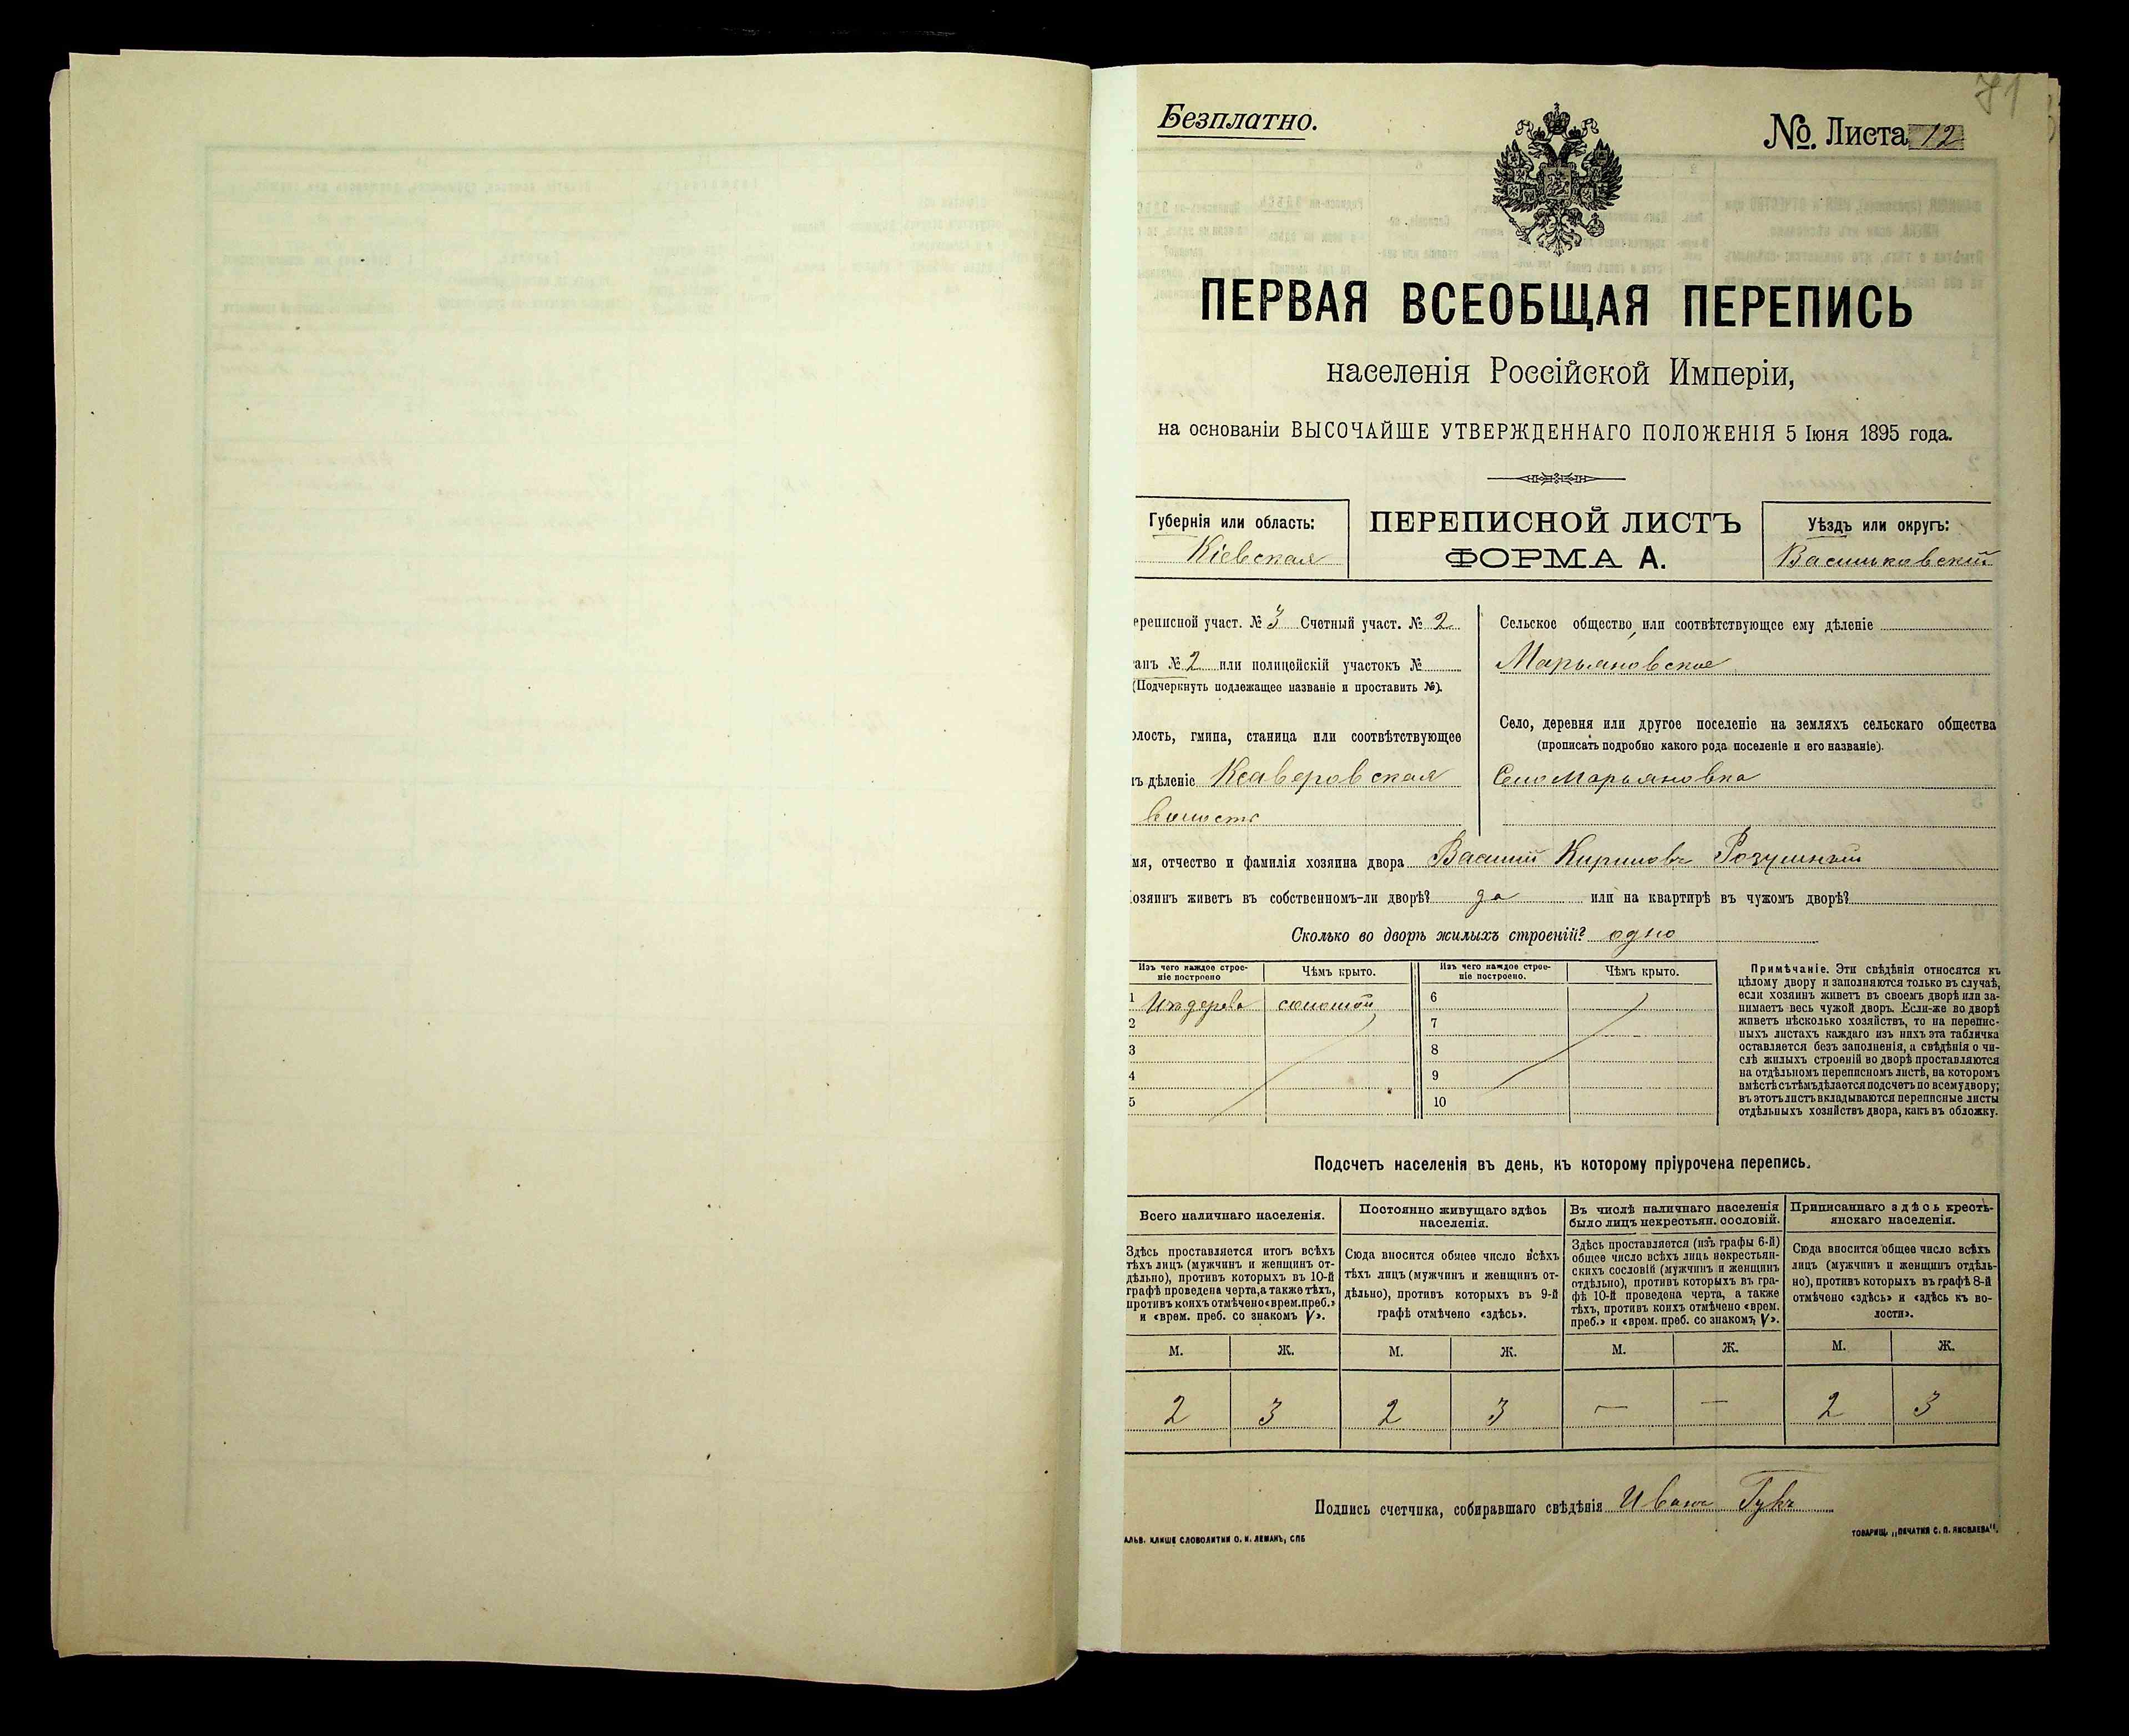 71
Безплатно.
№. Листа 12
ПЕРВАЯ ВСЕОБЩАЯ ПЕРЕПИСЬ
населенія Россійской Имперіи,
на основаніи ВЫСОЧАЙШЕ УТВЕРЖДЕННАГО ПОЛОЖЕНІЯ 5 Іюня 1895 года.
Губернія или область:
Кіевская
ПЕРЕПИСНОЙ ЛИСТЪ
ФОРМА А.
Уѣздъ или округъ:
Васильковскій
ереписной участ. № 3 Счетный участ. № 2
анъ № 2 или полицейскій участокъ №
(Подчеркнуть подлежащее названіе и проставить №).
олость, гмина, станица или соотвѣтствующее
ъ дѣленіе Ксаверовская
волость
Сельское общество, или соотвѣтствующее ему дѣленіе
Марьяновское
Село, деревня или другое поселеніе на земляхъ сельскаго общества
(прописать подробно какого рода поселеніе и его названіе).
Село Марьяновка
мя, отчество и фамилія хозяина двора Василій Кириловъ
озяинъ живетъ въ собственномъ-ли дворѣ? да или на квартирѣ въ чужомъ дворѣ?
Сколько во дворѣ жилыхъ строеній? одно
Изъ чего каждое строе-
ніе построено
Чѣмъ крыто.
Изъ чего каждое строе-
ніе построено.
Чѣмъ крыто.
1 Изъ дерева соломой 6
2 7
3 8
4 9
5 10
Примѣчаніе. Эти свѣдѣнія относятся къ
цѣлому двору и заполняются только въ случаѣ,
если хозяинъ живетъ въ своемъ дворѣ или за-
нимаетъ весь чужой дворъ. Если-же во дворѣ
живетъ нѣсколько хозяйствъ, то на перепис-
ныхъ листахъ каждаго изъ нихъ эта табличка
оставляется безъ заполненія, а свѣдѣнія о чи-
слѣ жилыхъ строеній во дворѣ проставляются
на отдѣльномъ переписномъ листѣ, на которомъ
вмѣстѣ съ тѣмъ дѣлается подсчетъ по всему двору;
въ этотъ листъ вкладываются переписные листы
отдѣльныхъ хозяйствъ двора, какъ въ обложку.
Подсчетъ населенія въ день, къ которому пріурочена перепись.
Всего наличнаго населенія.
Здѣсь проставляется итогъ всѣхъ
тѣхъ лицъ (мужчинъ и женщинъ от-
дѣльно), противъ которыхъ въ 10-й
графѣ проведена черта, а также тѣхъ,
противъ коихъ отмѣчено «врем. преб.»
и «врем. преб. со знакомъ V».
Постоянно живущаго здѣсь
населенія.
Сюда вносится общее число всѣхъ
тѣхъ лицъ (мужчинъ и женщинъ от-
дѣльно), противъ которыхъ въ 9-й
графѣ отмѣчено «здѣсь».
Въ числѣ наличнаго населенія
было лицъ некрестьян. сословій.
Здѣсь проставляется (изъ графы 6-й)
общее число всѣхъ лицъ некрестьян-
скихъ сословій (мужчинъ и женщинъ
отдѣльно), противъ которыхъ въ гра-
фѣ 10-й проведена черта, а также
тѣхъ, противъ коихъ отмѣчено «врем.
преб.» и «врем. преб. со знакомъ V».
Приписаннаго здѣсь кресть-
янскаго населенія.
Сюда вносится общее число всѣхъ
лицъ (мужчинъ и женщинъ отдѣль-
но), противъ которыхъ въ графѣ 8-й
отмѣчено «здѣсь» и «здѣсь къ во-
лости».
М. Ж. М. Ж. М. Ж. М. Ж.
2 3 2 3 — — 2 3
Подпись счетчика, собиравшаго свѣдѣнія Иванъ Гукъ
АЛЬВ. КЛИШЕ СЛОВОЛИТНИ О. И. ЛЕМАНЪ, СПБ
ТОВАРИЩ. „ПЕЧАТНЯ С. П. ЯКОВЛЕВА".